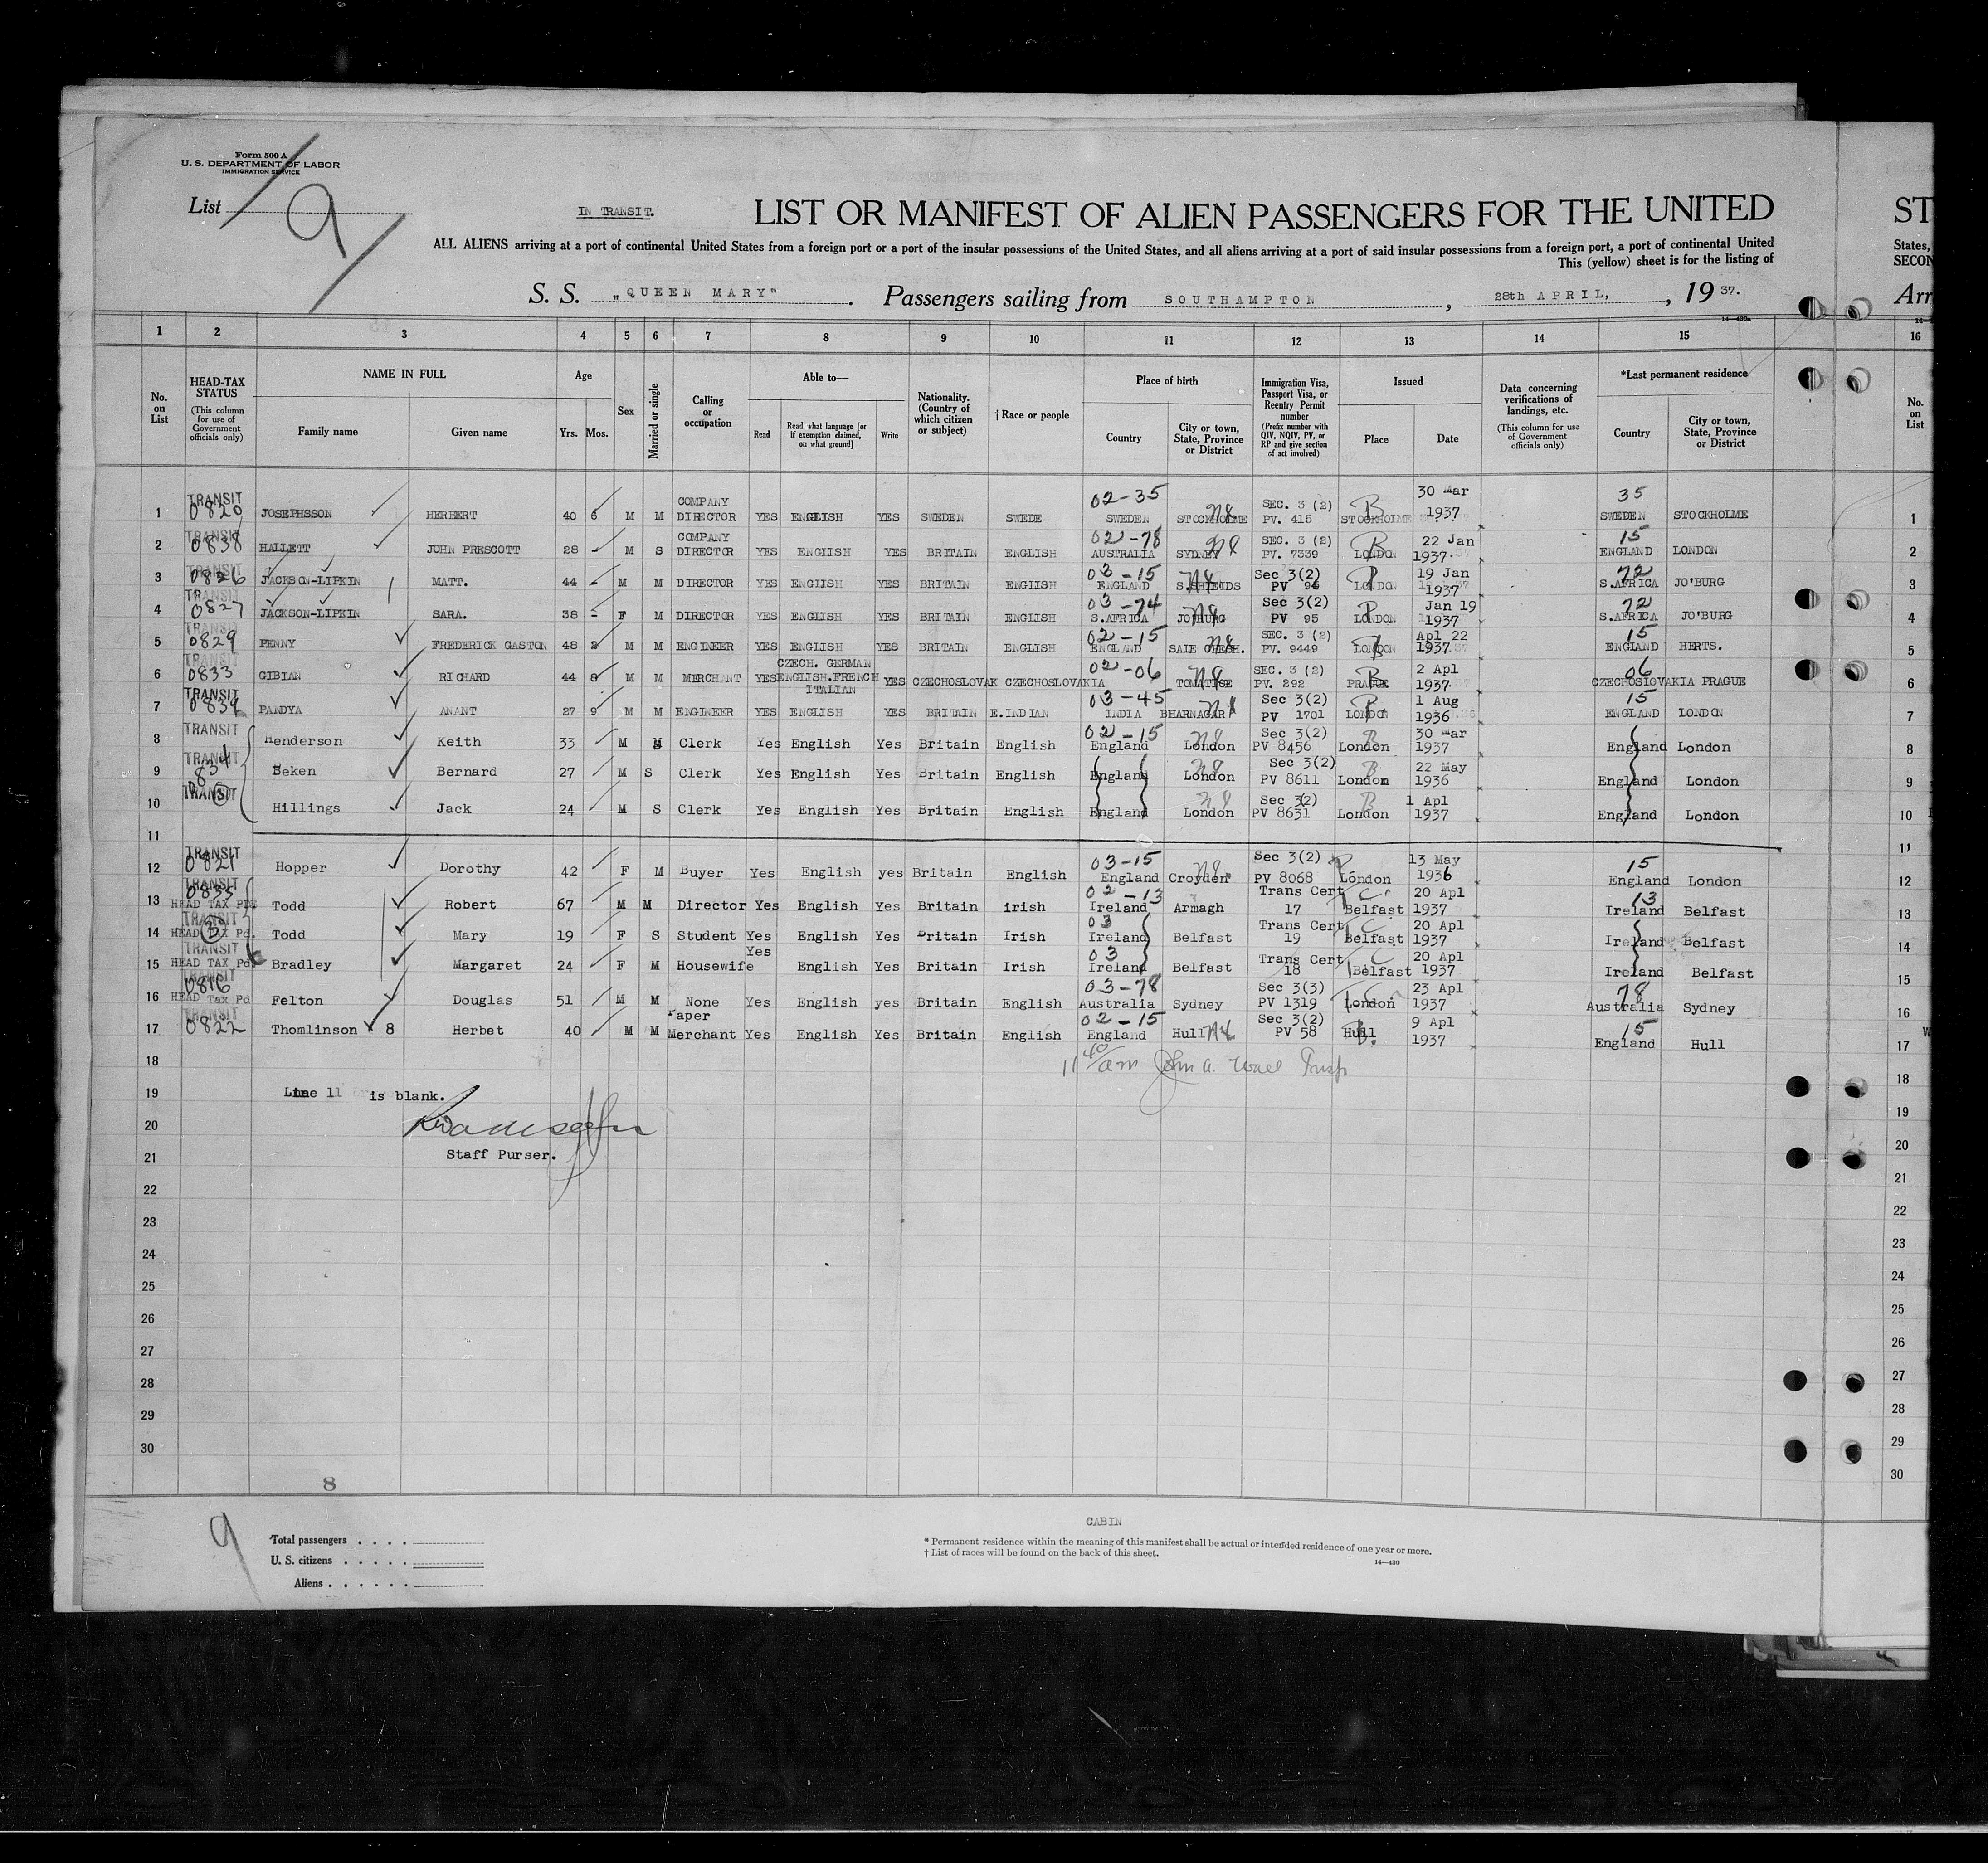 Form 500 A
U. S. DEPARTMENT OF LABOR
IMMIGRATION SERVICE
List 9
IN TRANSIT.
LIST OR MANIFEST OF ALIEN PASSENGERS FOR THE UNITED ST
ALL ALIENS arriving at a port of continental United States from a foreign port or a port of the insular possessions of the United States, and all aliens arriving at a port of said insular possessions from a foreign port, a port of continental United States,
This (yellow) sheet is for the listing of SECON
S. S. "QUEEN MARY". Passengers sailing from SOUTHAMPTON, 28th APRIL, , 19 37. Arr
14—430a
1 2 3 4 5 6 7 8 9 10 11 12 13 14 15 16
No. on List
HEAD-TAX STATUS (This column for use of Government officials only)
NAME IN FULL
Family name
Given name
Age
Yrs. Mos.
Sex
Married or single
Calling or occupation
Able to—
Read
Read what language [or if exemption claimed, on what ground]
Write
Nationality. (Country of which citizen or subject)
†Race or people
Place of birth
Country
City or town, State, Province or District
Immigration Visa, Passport Visa, or Reentry Permit number (Prefix number with QIV, NQIV, PV, or RP and give section of act involved)
Issued
Place
Date
Data concerning verifications of landings, etc. (This column for use of Government officials only)
*Last permanent residence
Country
City or town, State, Province or District
No. on List
1 TRANSIT 0820 JOSEPHSSON HERBERT 40 M M COMPANY DIRECTOR YES ENGLISH YES SWEDEN SWEDE 02-35 SWEDEN STOCKHOLME SEC. 3 (2) PV. 415 STOCKHOLME 30 Mar 1937 35 SWEDEN STOCKHOLME 1
2 TRANSIT 0838 HALLETT JOHN PRESCOTT 28 M S COMPANY DIRECTOR YES ENGLISH YES BRITAIN ENGLISH 02-78 AUSTRALIA SYDNEY SEC. 3 (2) PV. 7339 LONDON 22 Jan 1937. 15 ENGLAND LONDON 2
3 TRANSIT 0826 JACKSON-LIPKIN MATT. 44 - M M DIRECTOR YES ENGLISH YES BRITAIN ENGLISH 03-15 ENGLAND S.SHIELDS Sec 3(2) PV 94 LONDON 19 Jan 1937 72 S.AFRICA JO'BURG 3
4 TRANSIT 0827 JACKSON-LIPKIN SARA. 38 - F M DIRECTOR YES ENGLISH YES BRITAIN ENGLISH 03-74 S.AFRICA JO'BURG Sec 3(2) PV 95 LONDON Jan 19 1937 72 S.AFRICA JO'BURG 4
5 TRANSIT 0829 PENNY FREDERICK GASTON 48 M M ENGINEER YES ENGLISH YES BRITAIN ENGLISH 02-15 ENGLAND SALE CHESH. SEC. 3 (2) PV. 9449 LONDON Apl 22 1937 15 ENGLAND HERTS. 5
6 TRANSIT 0833 GIBIAN RICHARD 44 8 M M MERCHANT YES CZECH. GERMAN ENGLISH.FRENCH ITALIAN YES CZECHOSLOVAK CZECHOSLOVAKIA 02-06 SEC. 3 (2) PV. 292 PRAGUE 2 Apl 1937 06 CZECHOSLOVAKIA PRAGUE 6
7 TRANSIT PANDYA ANANT 27 9 M M ENGINEER YES ENGLISH YES BRITAIN E.INDIAN 03-45 INDIA BHARNAGAR Sec 3(2) PV 1701 LONDON 1 Aug 1936 15 ENGLAND LONDON 7
8 TRANSIT Henderson Keith 33 M Clerk Yes English Yes Britain English 02-15 England London Sec 3(2) PV 8456 London 30 Mar 1937 England London 8
9 TRANSIT 0834 Beken Bernard 27 M S Clerk Yes English Yes Britain English England London Sec 3(2) PV 8611 London 22 May 1936 England London 9
10 TRANSIT 3 Hillings Jack 24 M S Clerk Yes English Yes Britain English England London Sec 3(2) PV 8631 London 1 Apl 1937 England London 10
11 11
12 TRANSIT 0821 Hopper Dorothy 42 F M Buyer Yes English yes Britain English 03-15 England Croyden Sec 3(2) PV 8068 London 13 May 1936 15 England London 12
13 TRANSIT 0835 HEAD TAX Pd. Todd Robert 67 M M Director Yes English Yes Britain irish 02-13 Ireland Armagh Trans Cert 17 Belfast 20 Apl 1937 13 Ireland Belfast 13
14 TRANSIT 3 HEAD TAX Pd. Todd Mary 19 F S Student Yes English Yes Britain Irish 03 Ireland Belfast Trans Cert 19 Belfast 20 Apl 1937 Ireland Belfast 14
15 TRANSIT HEAD TAX Pd. Bradley Margaret 24 F M Housewife Yes English Yes Britain Irish 03 Ireland Belfast Trans Cert 18 Belfast 20 Apl 1937 Ireland Belfast 15
16 TRANSIT 0816 HEAD Tax Pd Felton Douglas 51 M M None Yes English yes Britain English 03-78 Australia Sydney Sec 3(3) PV 1319 London 23 Apl 1937 78 Australia Sydney 16
17 TRANSIT 0822 Thomlinson 8 Herbet 40 M M Paper Merchant Yes English Yes Britain English 02-15 England Hull Sec 3(2) PV 58 Hull 9 Apl 1937 15 England Hull 17
18 11 40/am John A. 18
19 Line 11 is blank. 19
20 20
21 Staff Purser. 21
22 22
23 23
24 24
25 25
26 26
27 27
28 28
29 29
30 30
8
9
CABIN
Total passengers . . . .
U. S. citizens . . . . .
Aliens . . . . . .
* Permanent residence within the meaning of this manifest shall be actual or intended residence of one year or more.
† List of races will be found on the back of this sheet.
14—430